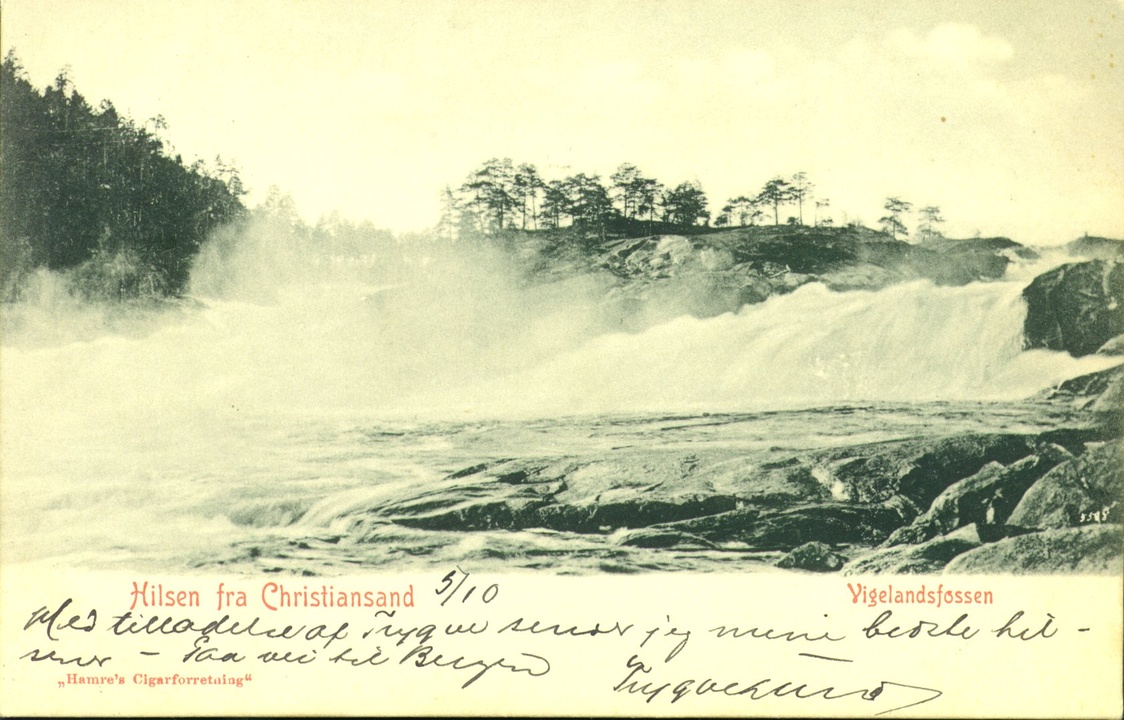 Hilsen fra Christiansand 5/10
Vigelandsfossen
Med tilladelse af Trygve sender jeg mine bedste hil-
sener – Paa vei til Bergen
„Hamre's Cigarforretning“
5598